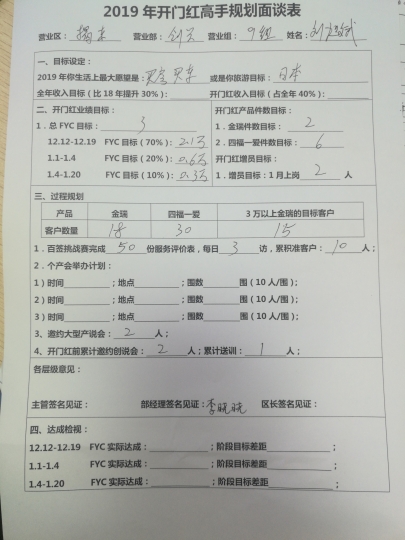 2019年开门红高手规划面谈表
营业区： 揭东 营业部： 创 营业组： 9组 姓名： 刘
一、目标设定：
2019年你生活上最大愿望是：买房买车 或是你旅游目标：日本
全年收入目标（比18年提升30%）： 开门红收入目标（占全年40%）：
二、开门红业绩目标： 开门红产品件数目标：
1．总FYC目标： 3 1．金瑞件数目标： 2
12.12-12.19 FYC目标（70%）：2.1万 2．四福一爱件数目标： 6
1.1-1.4 FYC目标（20%）：0.6万 开门红增员目标：
1.4-1.20 FYC目标（10%）：0.3万 1．增员目标：1月上岗 2 人
三、过程规划
产品 金瑞 四福一爱 3万以上金瑞的目标客户
客户数量 18 30 15
1．百签挑战赛完成 50 份服务评价表，每日 3 访，累积准客户： 10 人；
2．个产会举办计划：
1）时间 ；地点 ；围数 围（10人/围）；
2）时间 ；地点 ；围数 围（10人/围）；
3）时间 ；地点 ；围数 围（10人/围）；
3、邀约大型产说会： 2 人；
4、开门红前累计邀约创说会： 2 人；累计送训： 1 人；
各层级意见：
主管签名见证： 部经理签名见证：李晓晓 区长签名见证：
四、达成检视：
12.12-12.19 FYC实际达成： ；阶段目标差距 ；
1.1-1.4 FYC实际达成： ；阶段目标差距 ；
1.4-1.20 FYC实际达成： ；阶段目标差距 ；